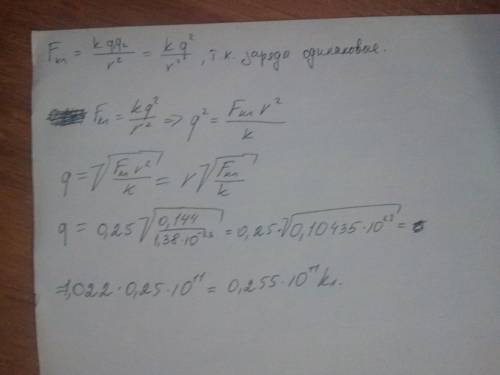 Fкл = kqq₂/r² = kq²/r², т.к. заряды одинаковые.
Fкл = kq²/r² => q² = Fкл r²/k
q = √(Fкл r²/k) = r√(Fкл/k)
q = 0,25√(0,144/1,38·10⁻²³) = 0,25·√(0,10435·10²³) =
=1,022·0,25·10¹¹ = 0,255·10¹¹ Кл.